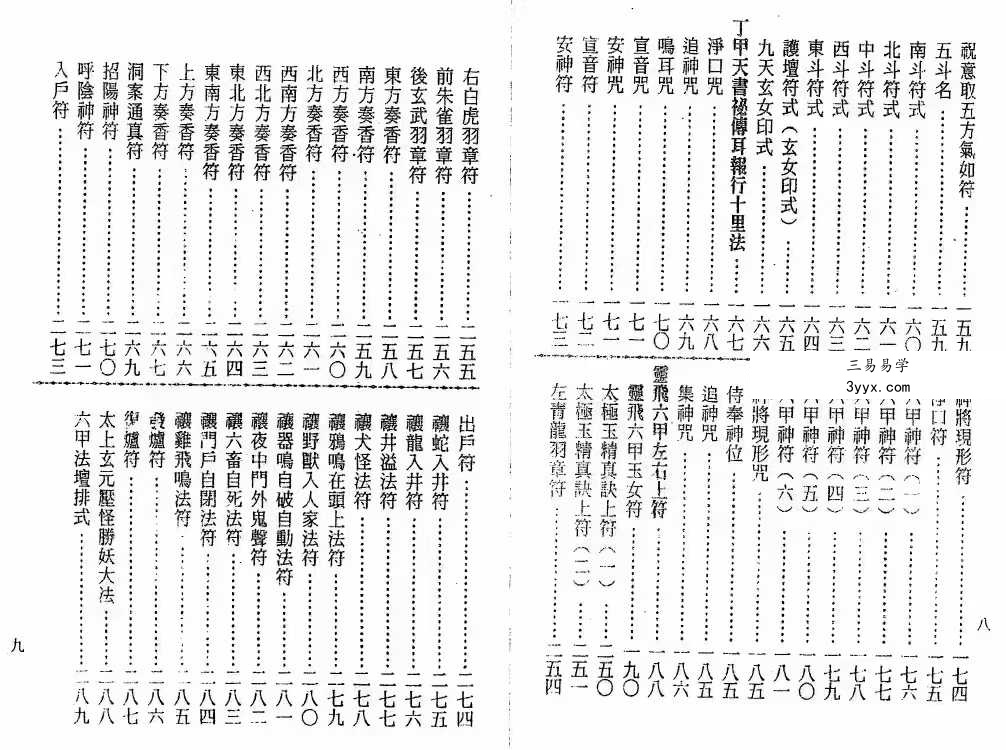 祝意取五方氣如符⋯⋯一五九
五斗名⋯⋯一五九
南斗符式⋯⋯一六〇
北斗符式⋯⋯一六一
中斗符式⋯⋯一六二
西斗符式⋯⋯一六三
東斗符式⋯⋯一六四
護壇符式(玄女印式)⋯⋯一六五
九天玄女印式⋯⋯一六六
丁甲天書祕傳耳報行十里法⋯⋯一六七
淨口咒⋯⋯一六八
追神咒⋯⋯一六九
鳴耳咒⋯⋯一七〇
宣音咒⋯⋯一七一
安神咒⋯⋯一七一
宣音符⋯⋯一七二
安神符⋯⋯一七三
三易易学
3yyx.com
神將現形符⋯⋯一七四
淨口符⋯⋯一七五
六甲神符(一)⋯⋯一七六
六甲神符(二)⋯⋯一七七
六甲神符(三)⋯⋯一七八
六甲神符(四)⋯⋯一七九
六甲神符(五)⋯⋯一八〇
六甲神符(六)⋯⋯一八一
神將現形咒⋯⋯一八五
侍奉神位⋯⋯一八五
追神咒⋯⋯一八五
集神咒⋯⋯一八六
靈飛六甲左右上符⋯⋯一八八
靈飛六甲玉女符⋯⋯一九〇
太極玉精真訣上符(一)⋯⋯二五〇
太極玉精真訣上符(二)⋯⋯二五一
左青龍羽章符⋯⋯二五四
八
右白虎羽章符⋯⋯二五五
前朱雀羽章符⋯⋯二五六
後玄武羽章符⋯⋯二五七
東方奏香符⋯⋯二五八
南方奏香符⋯⋯二五九
西方奏香符⋯⋯二六〇
北方奏香符⋯⋯二六一
西南方奏香符⋯⋯二六二
西北方奏香符⋯⋯二六三
東北方奏香符⋯⋯二六四
東南方奏香符⋯⋯二六五
上方奏香符⋯⋯二六六
下方奏香符⋯⋯二六七
洞案通真符⋯⋯二六九
招陽神符⋯⋯二七〇
呼陰神符⋯⋯二七一
入戶符⋯⋯二七三
出戶符⋯⋯二七四
禳蛇入井符⋯⋯二七五
禳龍入井符⋯⋯二七六
禳井溢法符⋯⋯二七七
禳犬怪法符⋯⋯二七八
禳鴉鳴在頭上法符⋯⋯二七九
禳野獸入人家法符⋯⋯二八〇
禳器鳴自破自動法符⋯⋯二八一
禳夜中門外鬼聲符⋯⋯二八二
禳六畜自死法符⋯⋯二八三
禳門戶自閉法符⋯⋯二八四
禳雞飛鳴法符⋯⋯二八五
發爐符⋯⋯二八六
復爐符⋯⋯二八七
太上玄元壓怪勝妖大法⋯⋯二八八
六甲法壇排式⋯⋯二八九
九